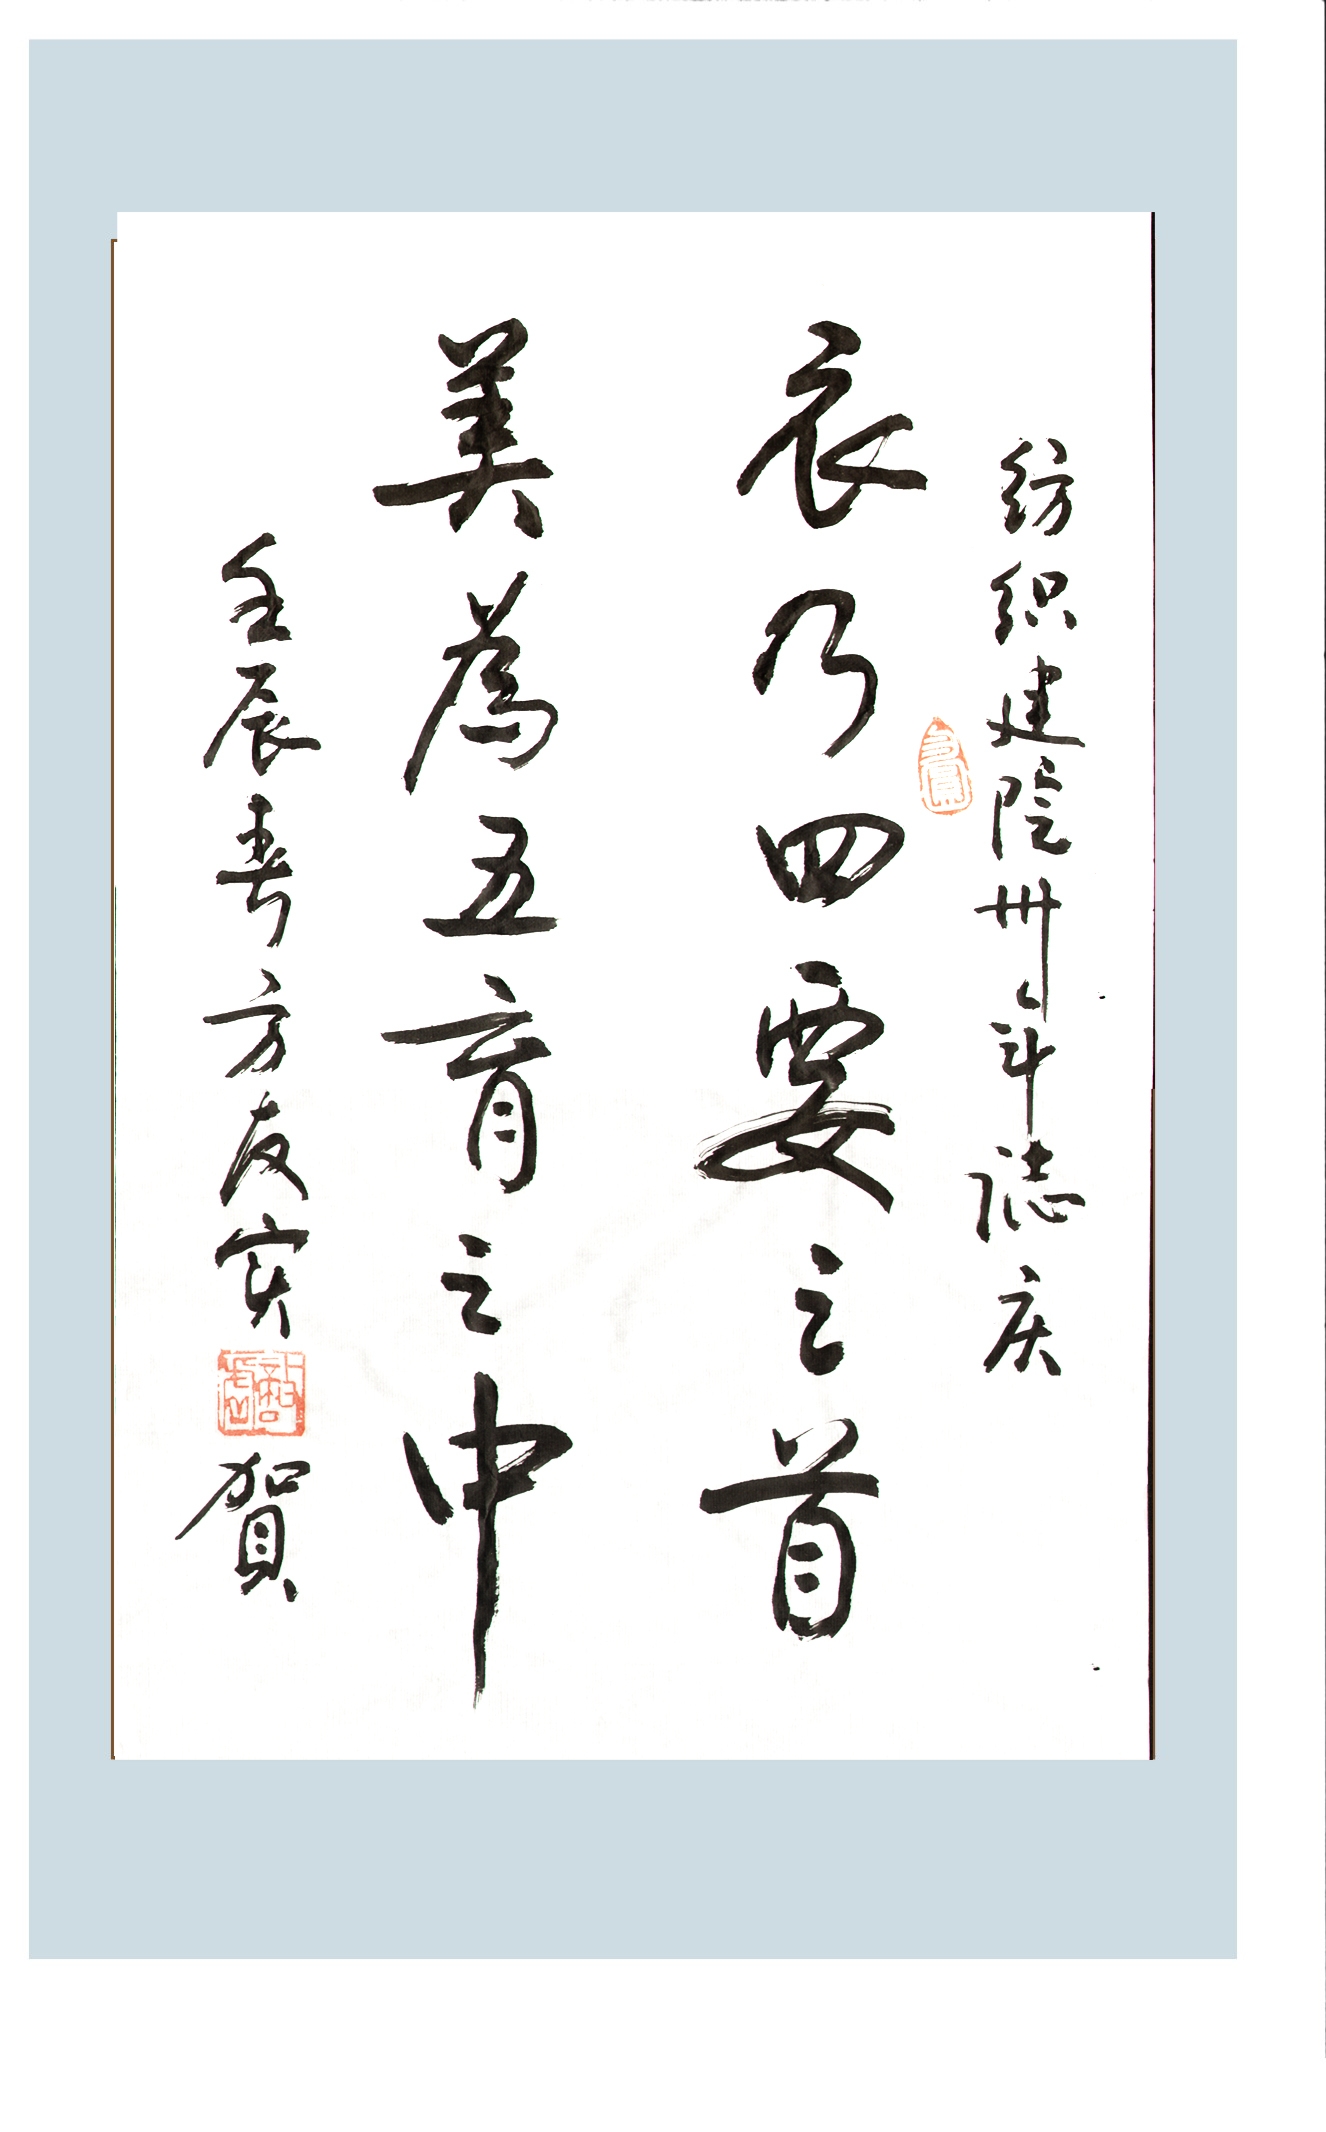 纺织建院卅年誌庆
衣乃四要之首
美為五育之中
壬辰春方友实
賀